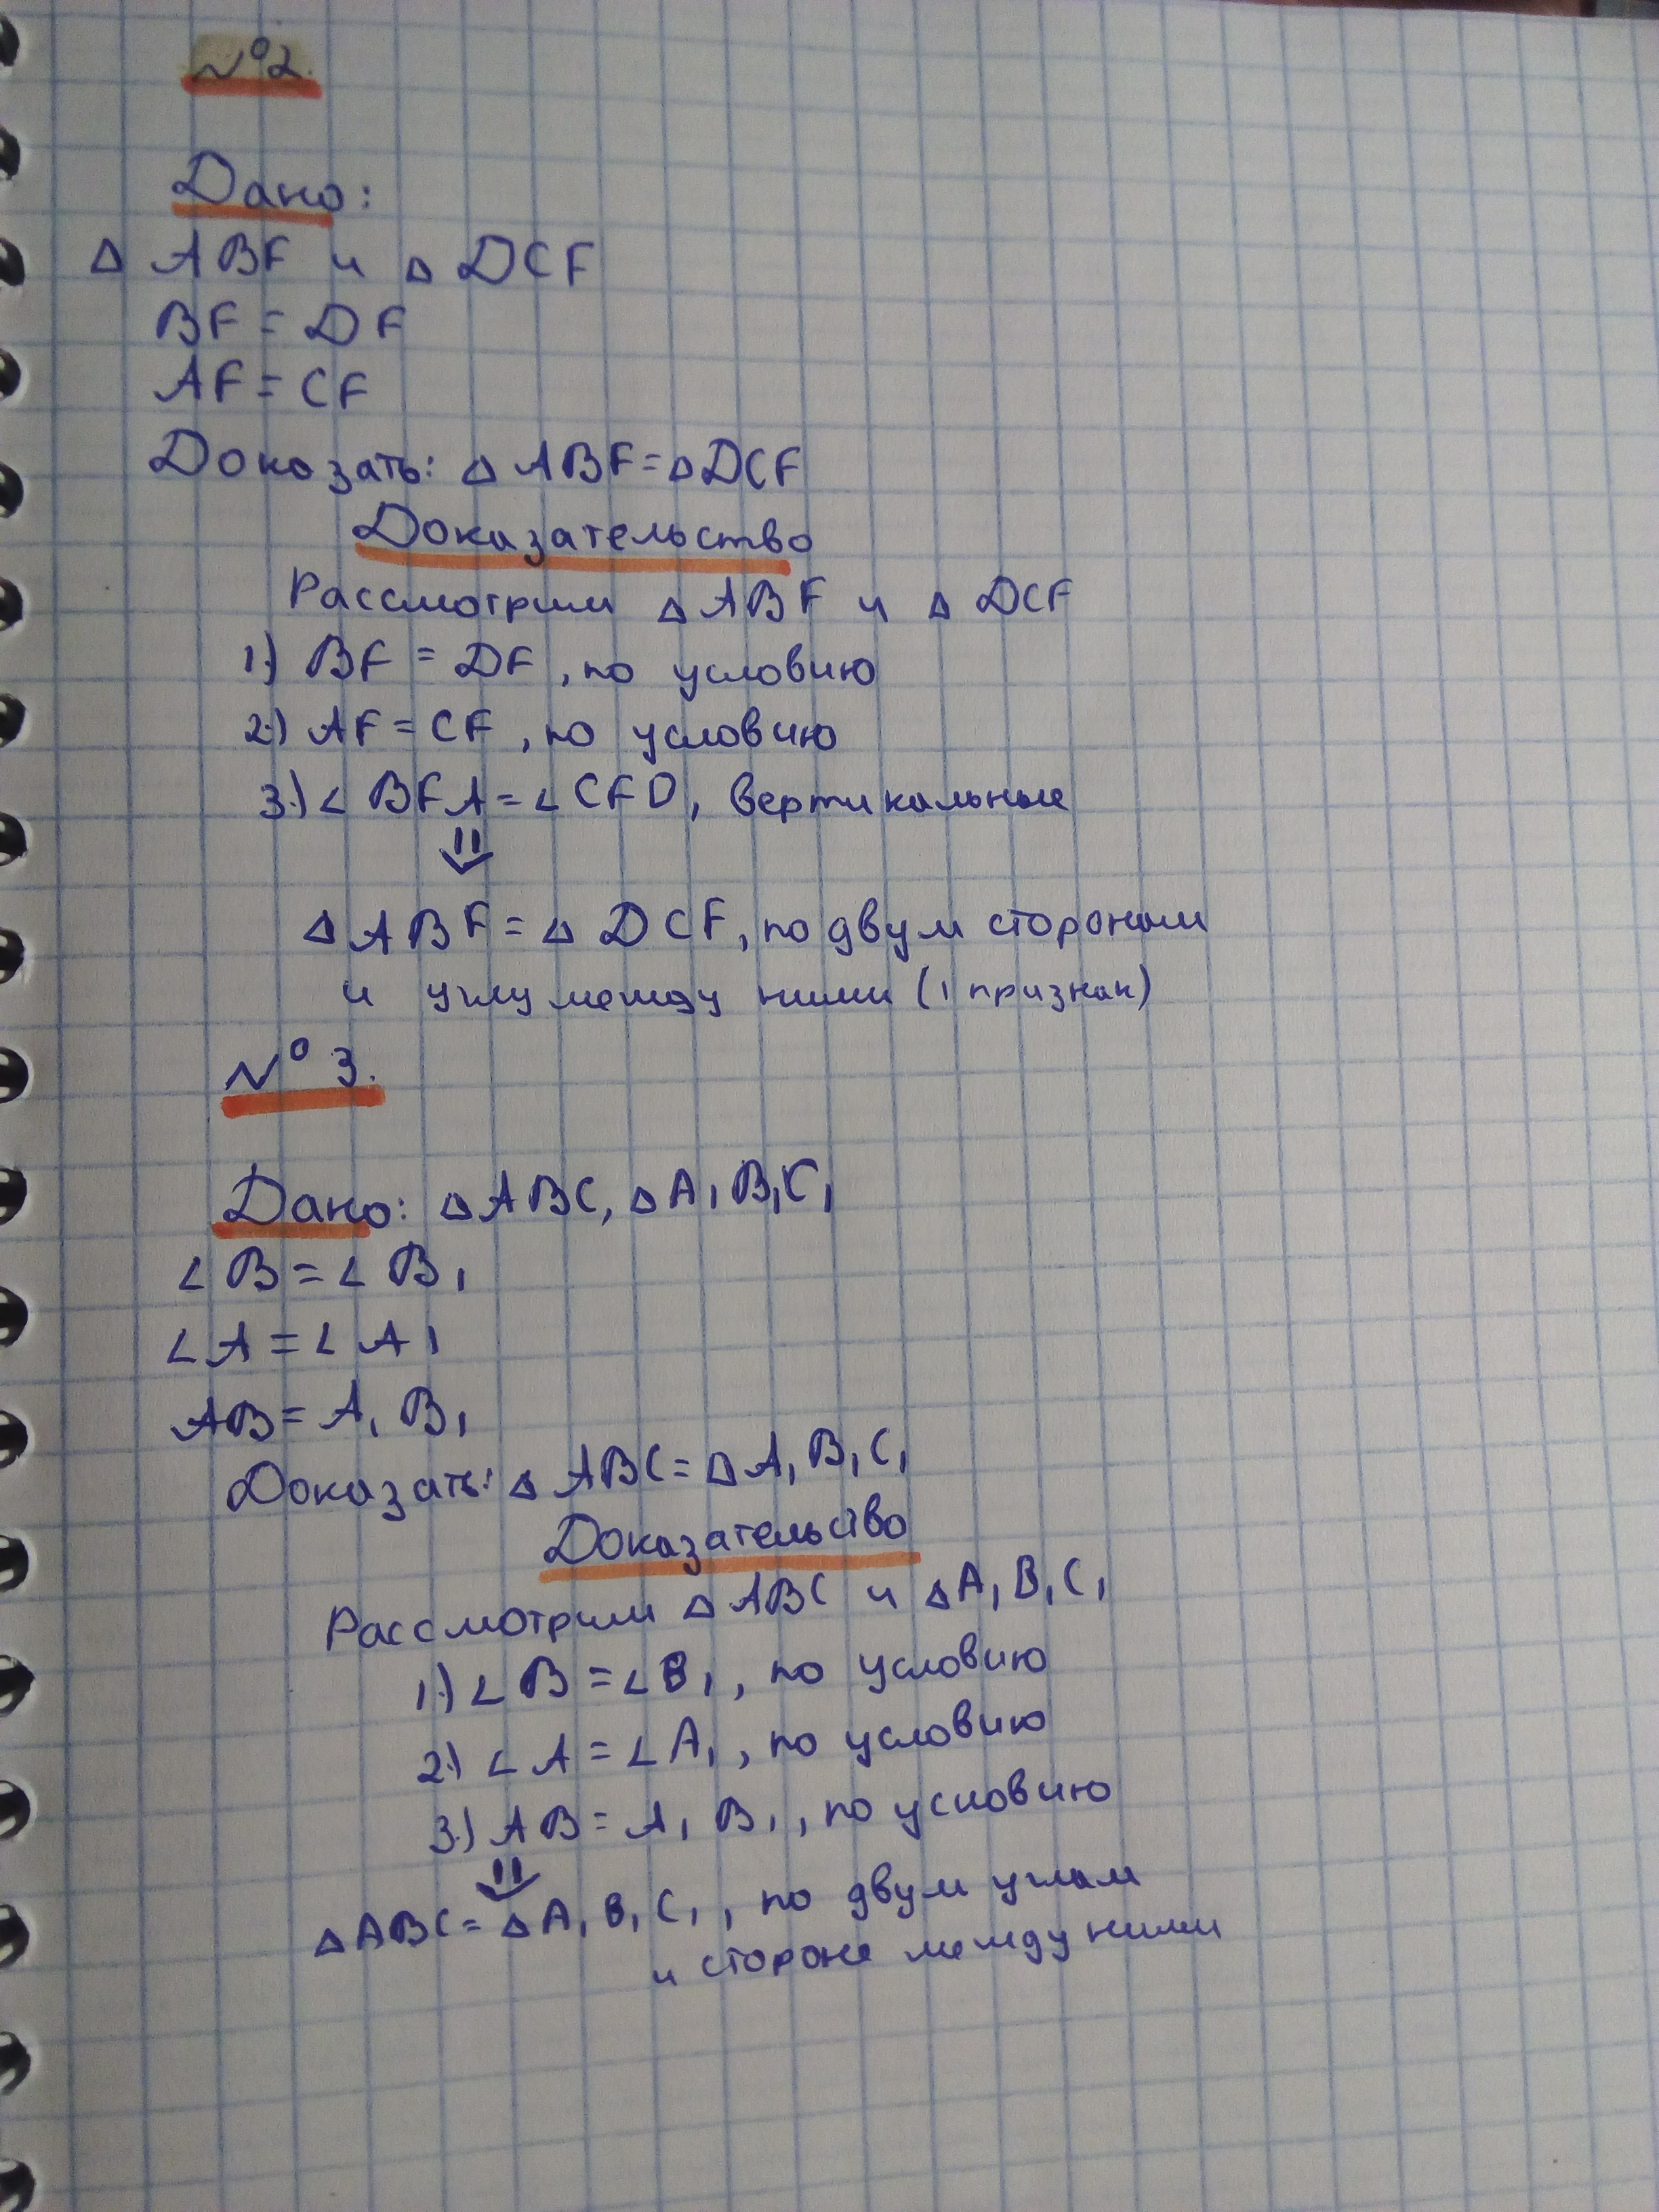 №2.
Дано:
Δ ABF и Δ DCF
BF = DF
AF = CF
Доказать: Δ ABF = Δ DCF
Доказательство
Рассмотрим Δ ABF и Δ DCF
1.) BF = DF, по условию
2.) AF = CF, по условию
3.) ∠ BFA = ∠ CFD, вертикальные
⇓
Δ ABF = Δ DCF, по двум сторонам
и углу между ними (1 признак)
№ 3.
Дано: Δ ABC, Δ A₁B₁C₁
∠ B = ∠ B₁
∠ A = ∠ A₁
AB = A₁B₁
Доказать: Δ ABC = Δ A₁B₁C₁
Доказательство
Рассмотрим Δ ABC и Δ A₁B₁C₁
1.) ∠ B = ∠ B₁, по условию
2.) ∠ A = ∠ A₁, по условию
3.) AB = A₁B₁, по условию
⇓
Δ ABC = Δ A₁B₁C₁, по двум углам
и стороне между ними